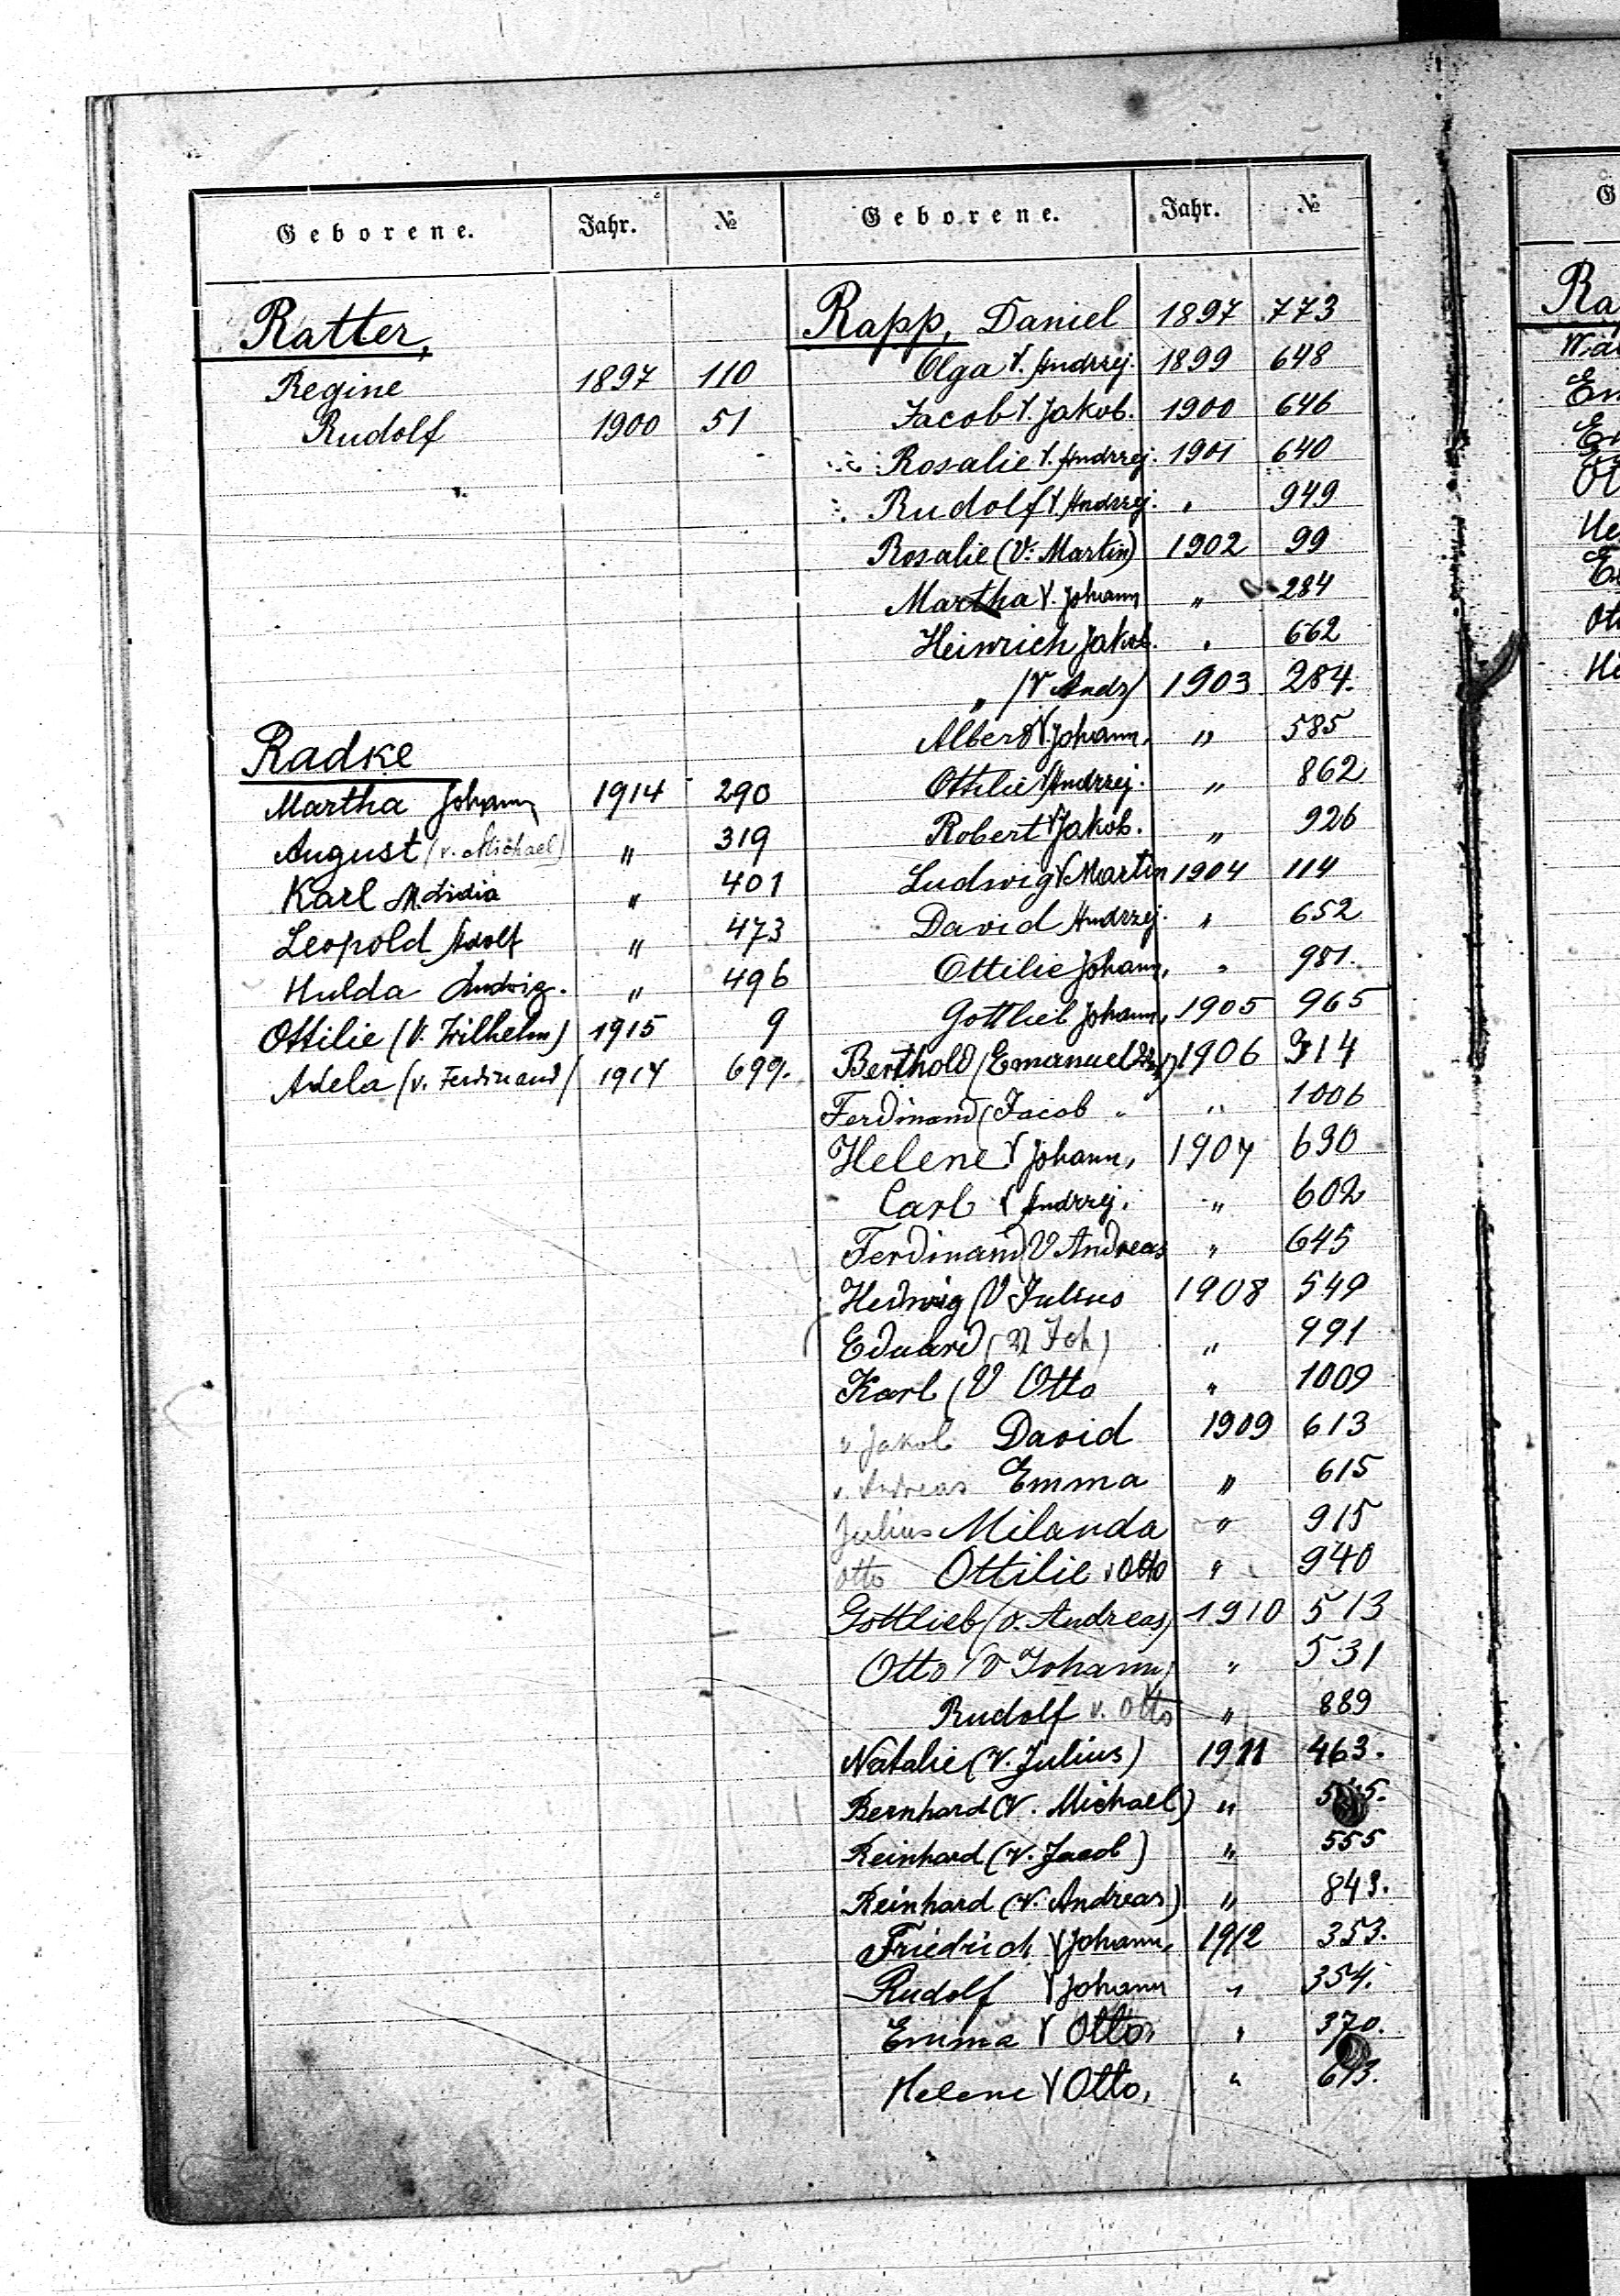 Geborene. Jahr. №
Ratter,
Regine 1897 110
Rudolf 1900 51
Radke
Martha Johann 1914 290
August (v. Michael) " 319
Karl M. Lidia " 401
Leopold Adolf " 473
Hulda Ludwig. " 496
Ottilie (V. Wilhelm) 1915 9
Adela (v. Ferdinand) 1914 699.
Geborene. Jahr. №
Rapp, Daniel 1897 773
Olga V. Andrzej. 1899 648
Jacob V. Jakob. 1900 646
Rosalie V. Andrzej. 1901 640
Rudolf V. Andrzej. " 949
Rosalie (V. Martin) 1902 99
Martha V. Johann " 284
Heinrich Jakob. " 662
" (V Andr) 1903 284.
Albert V. Johann, " 585
Ottilie V Andrzej. " 862
Robert V Jakob. " 926
Ludwig V Martin 1904 114
David Andrzej. " 652
Ottilie Johann, " 981.
Gottlieb Johann, 1905 965
Berthold (Emanuel 1906 314
Ferdinand (Jacob " " 1006
Helene V Johann, 1907 630
Carl V Andrzej. " 602
Ferdinand V Andreas " 645
Hedwig (V Julius 1908 549
Eduard (V Joh) " 991
Karl (V Otto " 1009
v. Jakob David 1909 613
v. Andreas Emma " 615
Julius Milanda " 915
Otto Ottilie v Otto " 940
Gottlieb (v. Andreas) 1910 513
Otto (V Johann) " 531
Rudolf v. Otto " 889
Natalie (V. Julius) 1911 463.
Bernhard (V. Michael) "
Reinhard (V. Jacob) " 555
Reinhard (V. Andreas) " 843.
Friedrich V Johann, 1912 353.
Rudolf V Johann " 354.
Emma V Otto, " 370.
Helene V Otto, " 613.
G
Ra